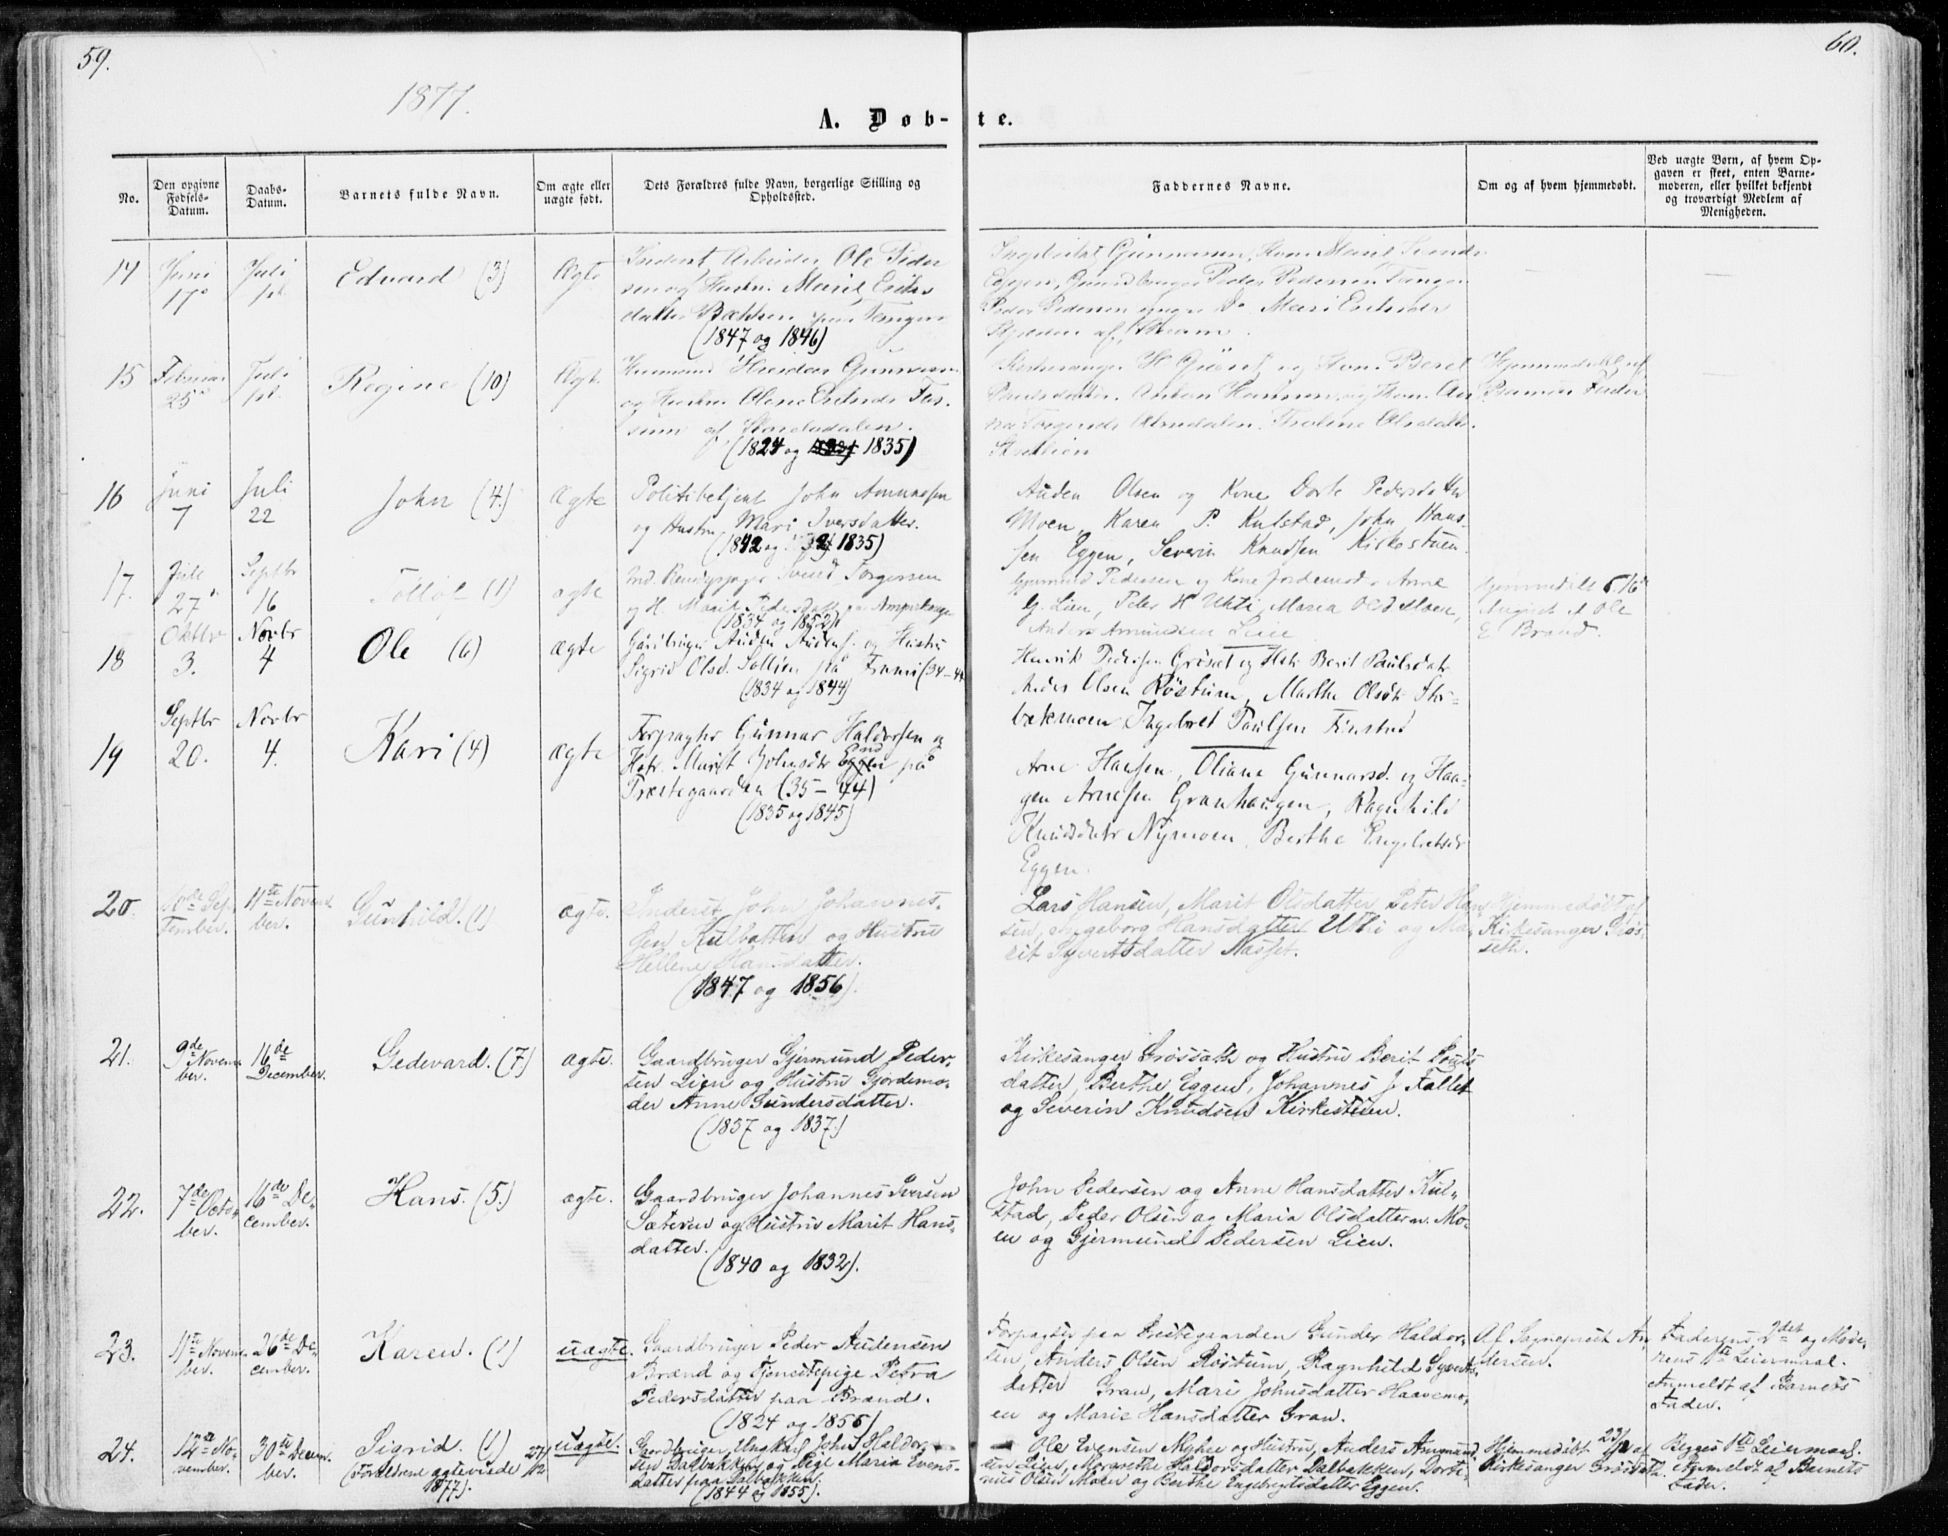 59.
60.
1877.
A. Døb-
te.
No.
Den opgivne Fødsels-Datum.
Daabs-Datum.
Barnets fulde Navn.
Om ægte eller uægte født.
Dets Forældres fulde Navn, borgerlige Stilling og Opholdssted.
Faddernes Navne.
Om og af hvem hjemmedøbt.
Ved uægte Børn, af hvem Opgaven er skeet, enten Barnemoderen, eller hvilket bekjendt og troværdigt Medlem af Menigheden.
14
Juni
17
Juli
1ste
Edvard (3)
Ægte
Inderst Arbeider Ole Peder
sen og Hustru Marit Eriks
datter
(1847 og 1846)
Ingebrikt Gunnarsen, Kone Marit
Eggen, Gaardbruger Peder Pedersen Tangen
Peder Pedersen yngre Do Mari
15
Februar
25
Juli
1ste
Regine (10)
Ægte
Husmand Gunnarsen
og Hustru Olene
sum af
(1824 og 1835)
Kirkesanger H Grøset og Kone Beret
Paulsdatter. Anton Hansen og Kone
Hjemmedøbt af
16
Juni
7
Juli
22
John (4)
Ægte
Politibetjent John Amundsen
og Hustru Mari Iversdatter.
(1842 og 1835)
Auden Olsen og Kone Dorte Pedersdatter
Moen, Karen P. Kulstad, John Han-
sen Eggen, Severin Knudsen Kirkestuen.
17.
Juli
27
Septbr
16
Tollof (1)
ægte
Svend Torgersen
og H. Marit Pedersdatt paa
(1834 og 1852)
Gjermund Pedersen og Kone Jordemod. Anne
G. Lien, Peter H Utti, Maren Olsd Moen,
Anders Amundsen Lien
Hjemmedøbt d. 16
August af Ole
E Brænd.
18
Oktbr
3.
Novbr
4
Ole (6)
ægte
Gårdbruger Auden Audens. og Hustru
Sigrid Olsd. Sollien på (34-44
(1834 og 1844)
Henrik Pedersen Grøset og Hstr Berit Paulsdatr
Anders Olsen Røstum, Marthe Olsdtr Stor-
bækmoen Ingebret Paulsen
19
Septbr
20.
Novbr
4.
Kari (4)
ægte
Forpagter Gunnar Haldorsen og
Hstr. Marit Johnsdtr Eggen på
Præstegaarden (35-44)
(1835 og 1845)
Arne Hansen, Oliana Gunnarsd. og Haa-
gen Arnesen Granhaugen, Ragnhild
Knudsdatr Nymoen, Berthe Engebretsdr
Eggen.
20.
10de Sep-
tember.
11te Novem-
ber.
Gunhild. (1)
ægte.
Inderst John Johannes-
sen Kulbotten og Hustru
Hellene Hansdatter.
(1847 og 1856).
Lars Hansen, Marit Olsdatter, Peter Han-
sen, Ingeborg Hansdatter Utti og Ma-
rit Syvertsdatter Næsset.
Hjemmedøbt af
Kirkesanger Grøs-
seth.
21.
9de Novem-
ber.
16de
December.
Gedevard. (7)
ægte.
Gaardbruger Gjermund Peder-
sen Lien og Hustru Gjordemo-
der Anne Gundersdatter.
(1837 og 1837.)
Kirkesanger Grøssæth og Hustru Berit Pouls-
datter, Berthe Eggen, Johannes J. Fallet
og Severin Knudsen Kirkestuen.
22.
7de Octo-
ber.
16de De-
cember.
Hans. (5.)
ægte.
Gaardbruger Johannes Iversen
Sæteren og Hustru Marit Hans-
datter.
(1840 og 1832).
John Pedersen og Anne Hansdatter Kul-
stad, Peder Olsen og Maria Olsdatter Mo-
en og Gjermund Pedersen Lien.
23.
11te Novem-
ber.
26de De-
cember.
Karen. (1)
uægte.
Gaardbruger Peder Audensen
Brænd og Tjenestepige Petra
Pedersdatter paa Brænd.
(1824 og 1856)
Forpagter paa Præstegaarden Gunder Haldor-
sen, Anders Olsen Røstum, Ragnhild Syverts-
datter Gran, Mari Johnsdatter Haavemo-
en og Marie Hansdatter Gran.
Af Sognepræst An-
dersen.
Faderens 2det og Mode-
rens 1ste Leiermaal.
Anmeldt af Barnets
Fader.
24.
12te No-
vember.
30te Decem-
ber.
Sigrid. (1)
(Forældrene ægteviede 27/12
1877).
uægte.
Gaardbruger Ungkarl John Haldor-
sen Dalbakken og Pige Maria Evens-
datter paa Dalbakken.
(1844 og 1855).
Ole Evensen Myhre og Hustru, Anders Amund-
sen Lien, Margrethe Haldorsdatter Dalbakken, Dorte
Olsen Moen og Berthe Engebrigtsdatter Eggen.
Hjemmedøbt 23/12 af
Kirkesanger Grøsseth.
Begges 1ste Leiermaal.
Anmeldt af Barnets
Fader.